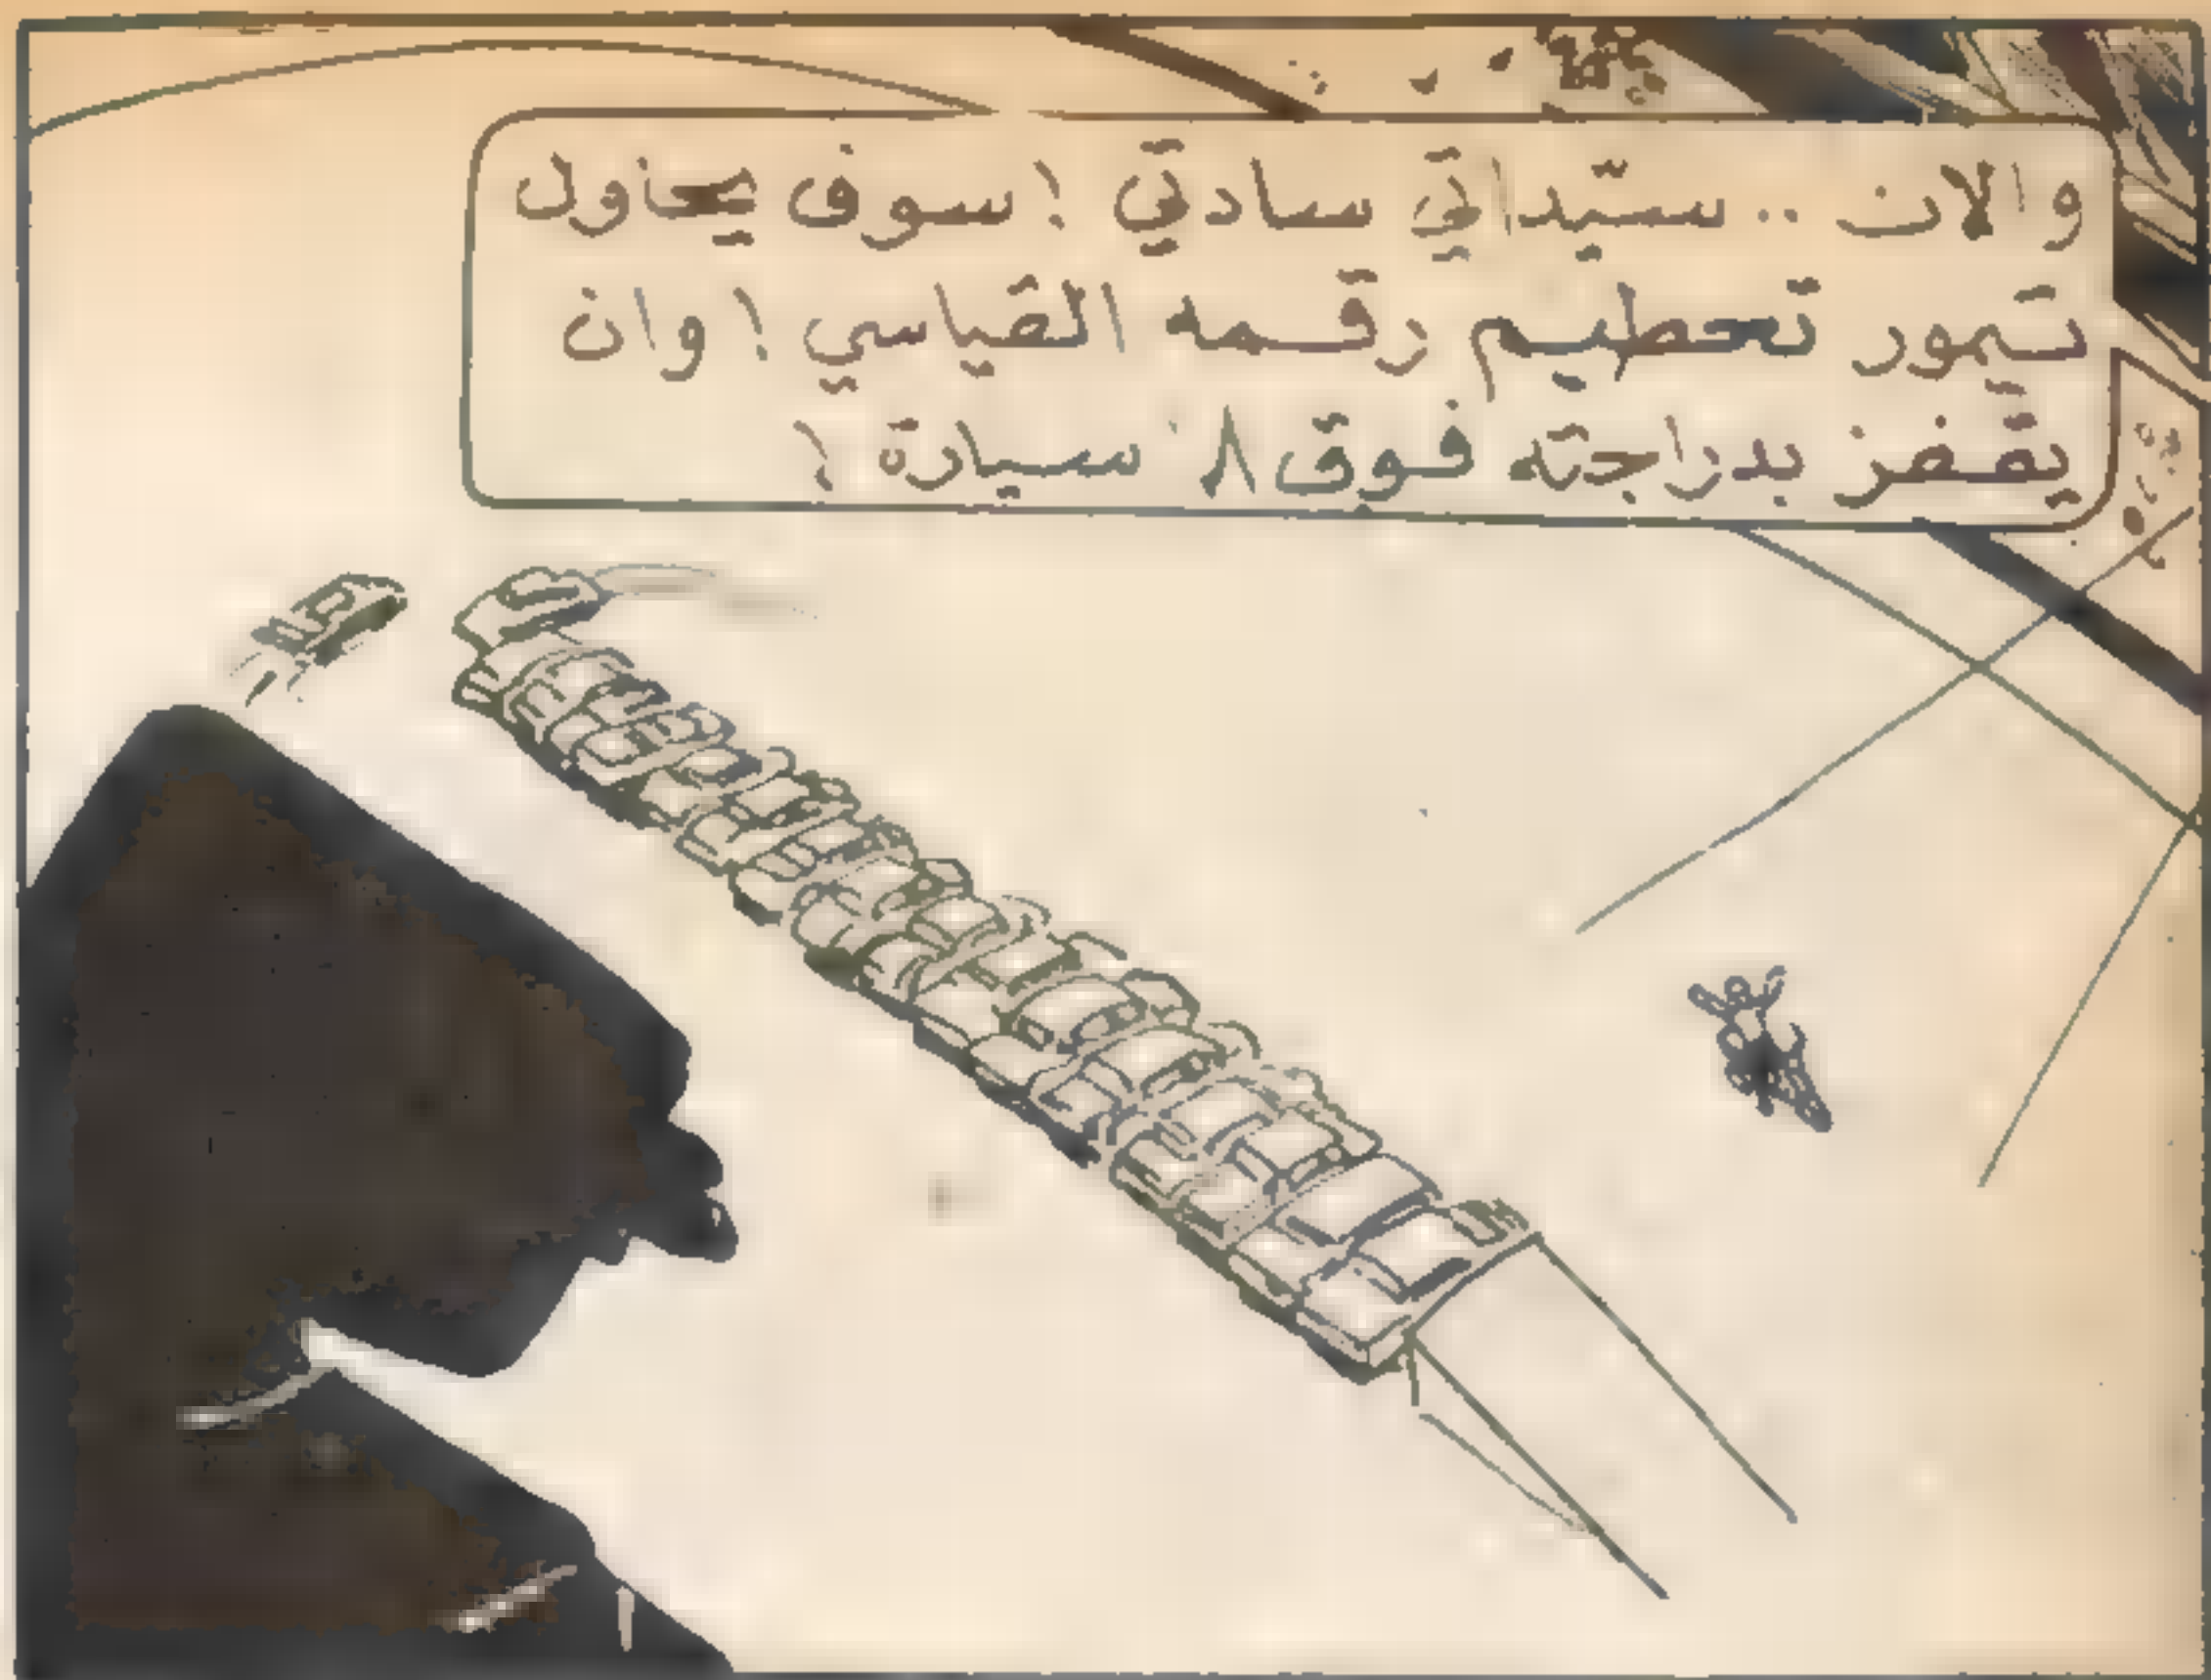 والان .. سيّداتي سادتي ! سوف يحاول
تيمور تحطيم رقمه القياسي ! وان
يقفز بدراجته فوق ١٨ سيارة !